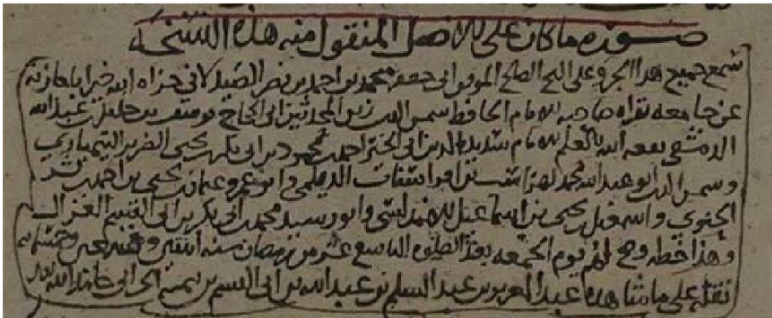 صورة ما كان على الاصل المنقول منه هذه النسخة
سمع جميع هذا الجزو على الشيخ الصالح ابى جعفر محمد بن احمد بن نصر الصيدلانى جزاه الله خيرا باجازته
عن جامعه بقراة صاحبه الامام الحافظ شمس الدين زين المحدثين ابى الحجاج يوسف بن خليل بن عبد الله
الدمشقى نفعه الله بالعلم الامام سديد الدين ابى محمود بن ابى بكر بن يحيى الضرير
وشمس الدين ابو عبد الله محمد الديلمى وابو عمرو عثمان بن يحيى بن احمد بن
واسمعيل بن يحيى بن اسماعيل الاندلسى وابو رشيد محمد بن ابى بكر بن ابى القسم الغزال
وهذا خطه وصح لهم يوم الجمعه بعد الصلوة التاسع عشر من رمضان سنه اثنتين وتسعين وخمسمايه
نقله على ما شاهده عبد العزيز بن عبد السلم بن عبد الله بن ابى القسم بن تيميه الحرانى حامدا لله تعالى